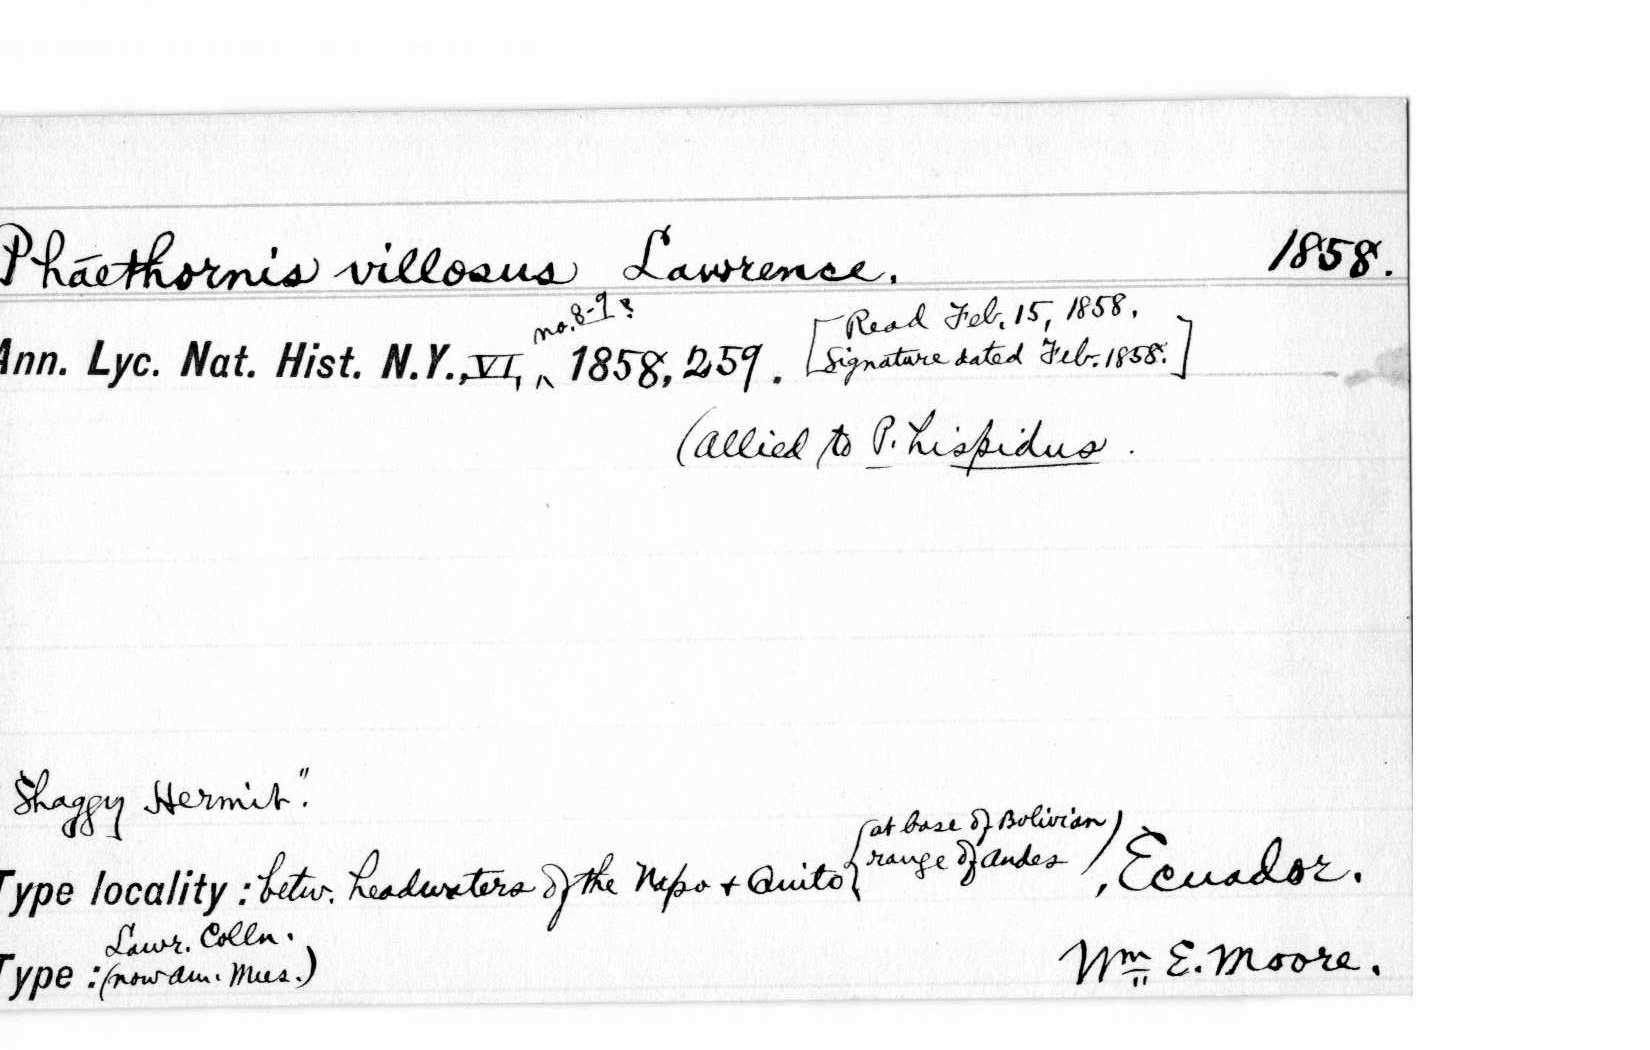 Phaethornis villosus Lawrence. 1858.
no. 8-9?
Ann. Lyc. Nat. Hist. N.Y., VI, ^ 1858, 259. [Read Feb. 15, 1858.
Signature dated Feb. 1858.]
(Allied to P. hispidus.
Shaggy Hermit".
{at base of Bolivian
range of Andes}
Type locality: betw. headwaters of the Napo + Quito, Ecuador.
Lawr. Colln.
Type: (now Am. Mus.) Wm E. Moore.